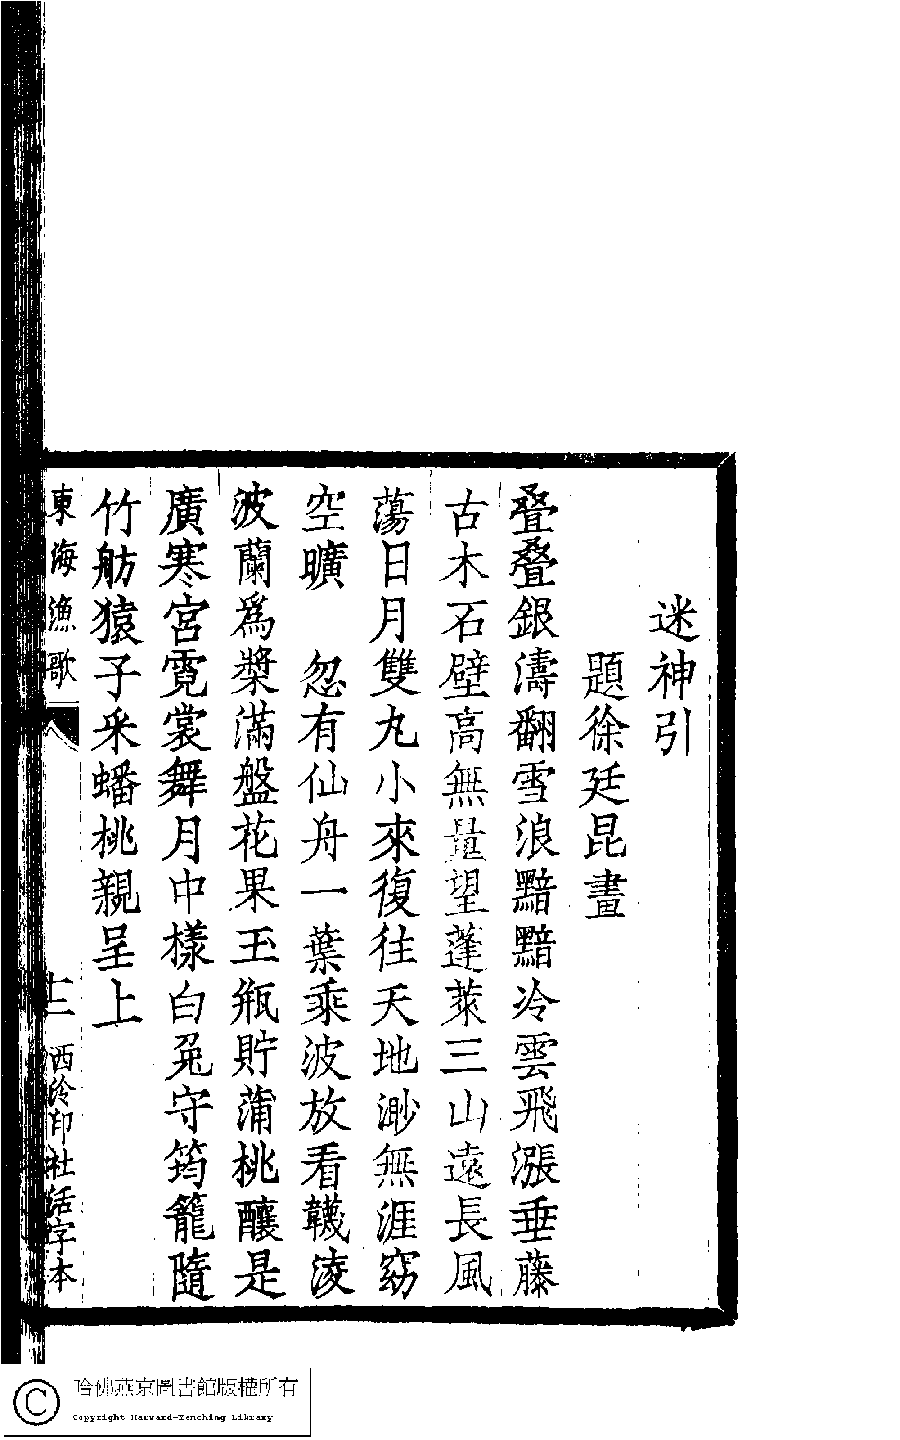 迷神引
題徐廷昆畫
叠叠銀濤翻雪浪黯黯冷雲飛漲垂藤
古木石壁高無量望蓬萊三山遠長風
蕩日月雙丸小來復往天地渺無涯窈
空曠　忽有仙舟一葉乘波放看韈淩
波蘭為槳滿盤花果玉瓶貯蒲桃釀是
廣寒宮霓裳舞月中樣白兔守筠籠隨
竹舫猿子釆蟠桃親呈上
東海漁歌
十二
西泠印社活字本
哈佛燕京圖書館版權所有
Copyright Harvard-Yenching Library